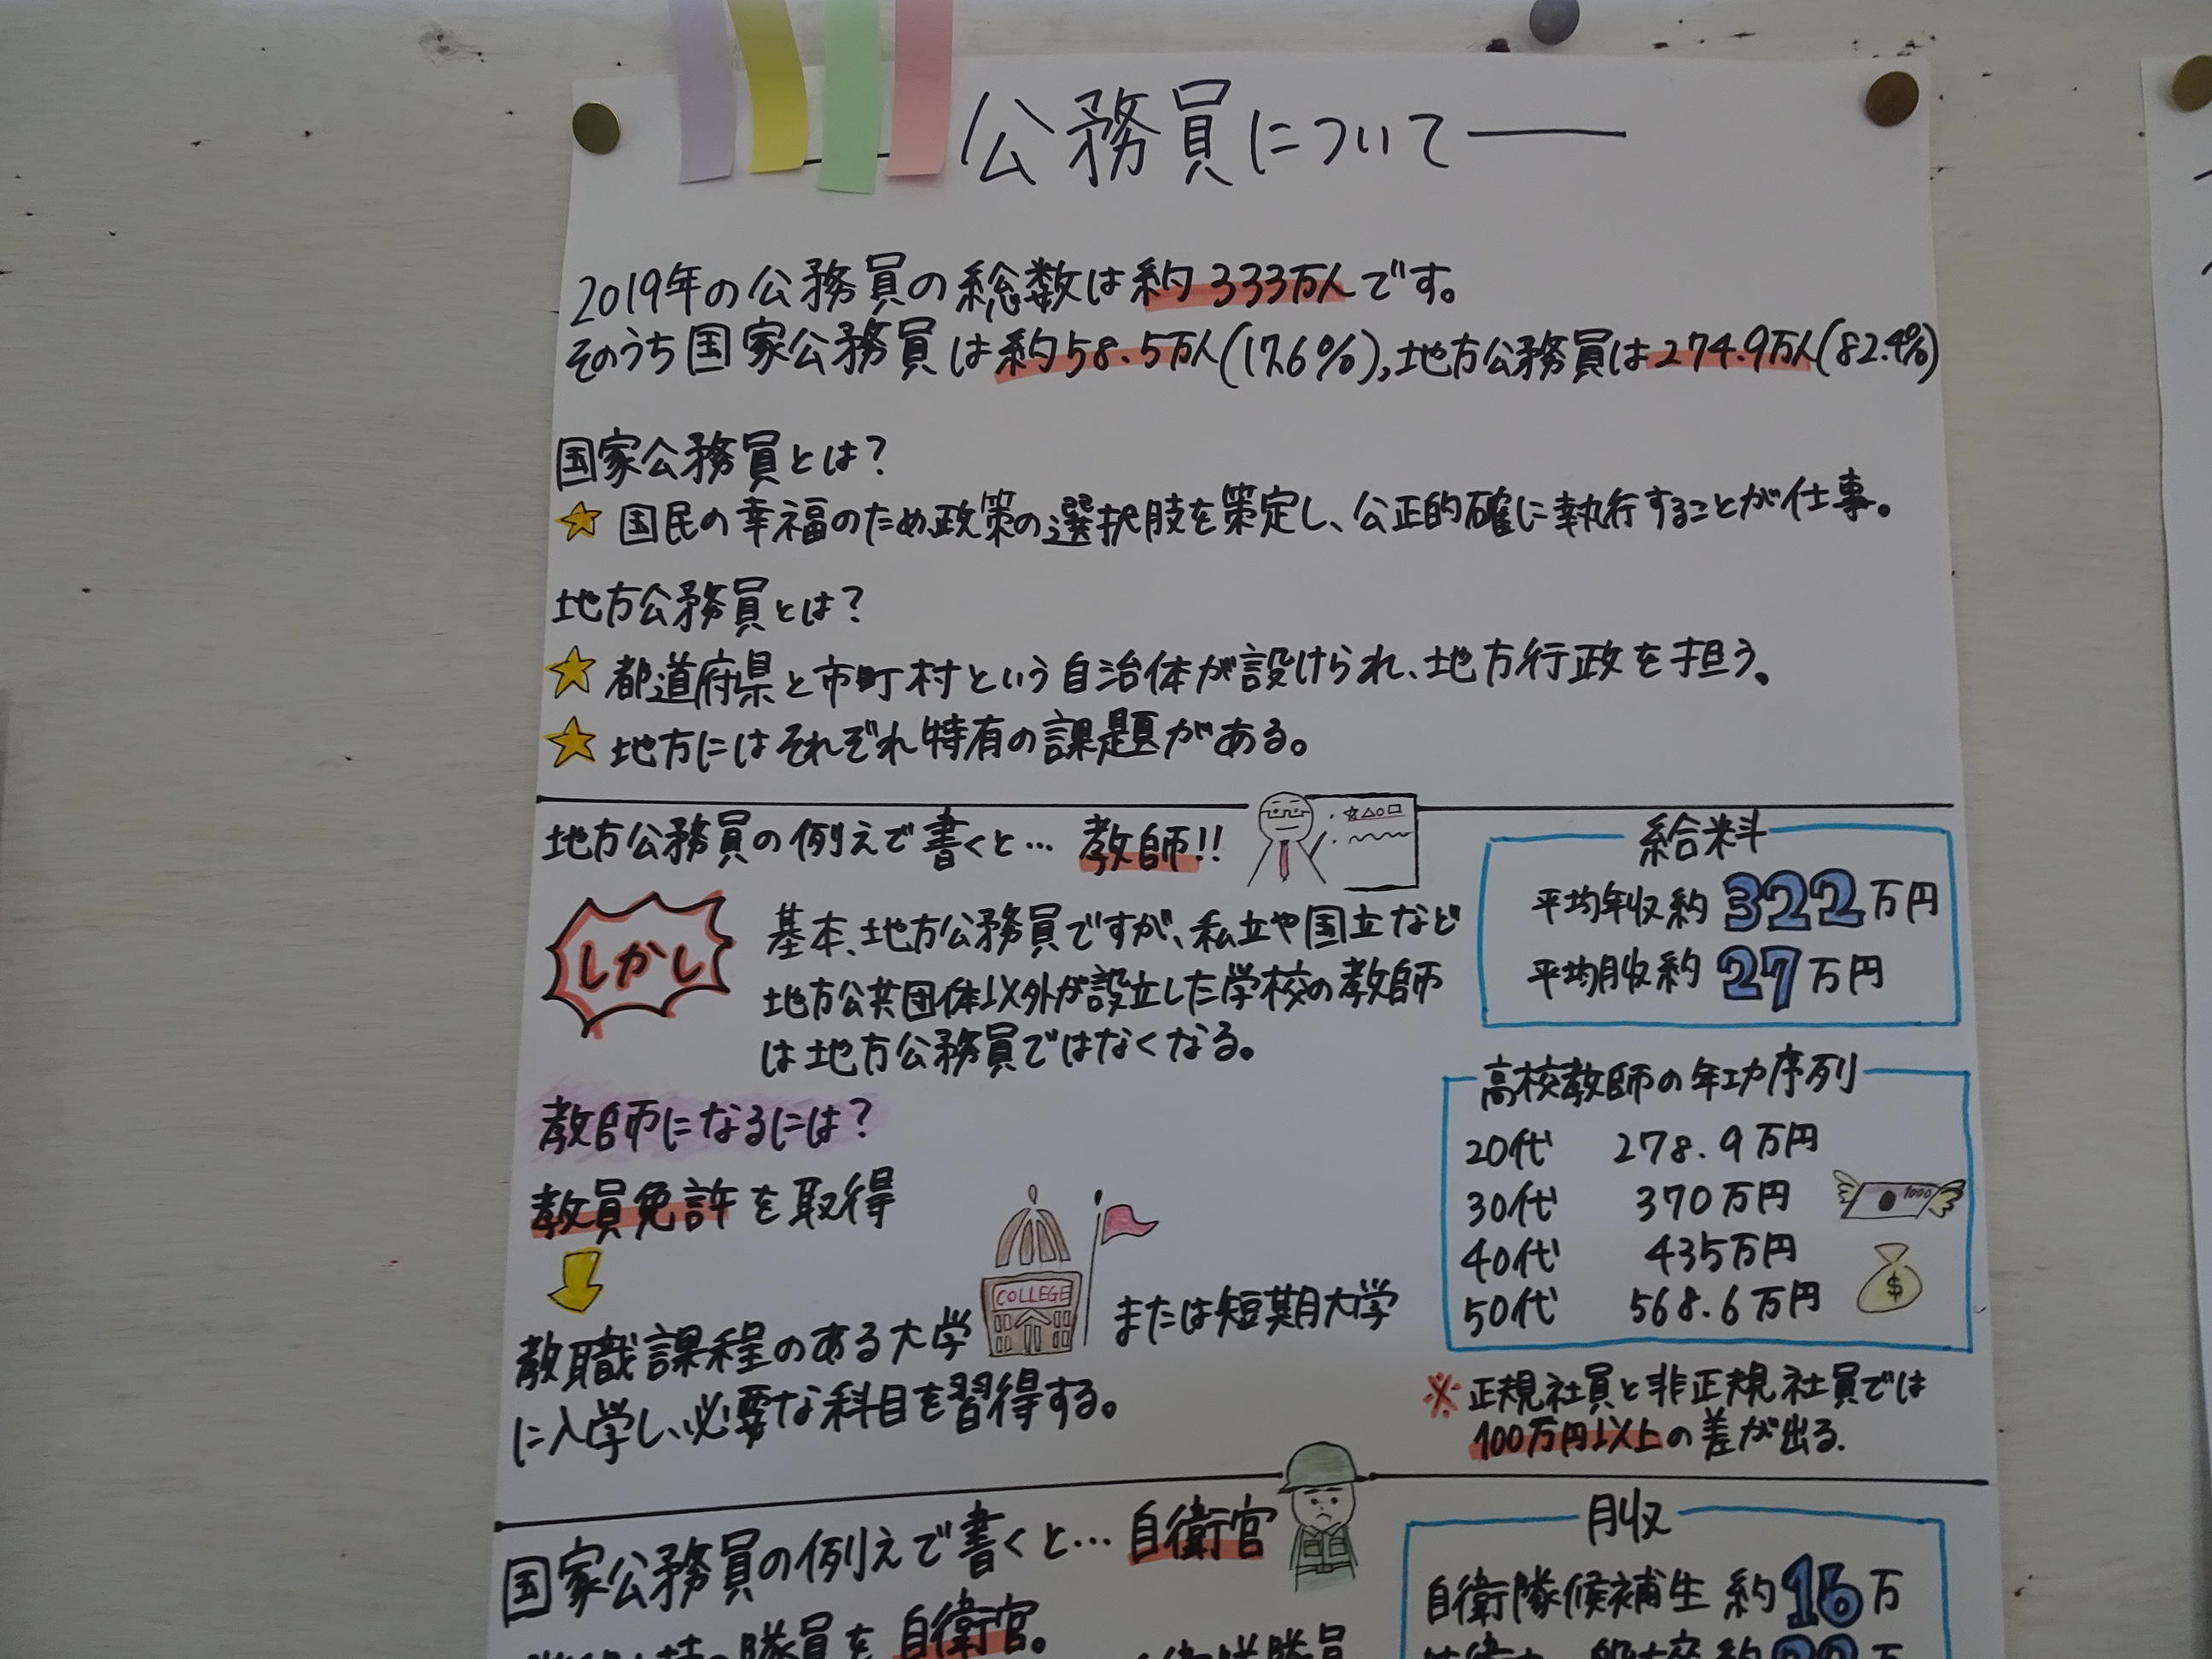 公務員について
2019年の公務員の総数は約333万人です。
そのうち国家公務員は約58.5万人(17.6%),地方公務員は274.9万人(82.4%)
国家公務員とは?
国民の幸福のため政策の選択肢を策定し、公正的確に執行することが仕事。
地方公務員とは?
都道府県と市町村という自治体が設けられ、地方行政を担う。
地方にはそれぞれ特有の課題がある。
地方公務員の例えで書くと… 教師!!
しかし
基本、地方公務員ですが、私立や国立など
地方公共団体以外が設立した学校の教師
は地方公務員ではなくなる。
給料
平均年収約322万円
平均月収約27万円
教師になるには?
教員免許を取得
教職課程のある大学
COLLEGE
または短期大学
に入学し、必要な科目を習得する。
高校教師の年功序列
20代 278.9万円
30代 370万円
40代 435万円
50代 568.6万円
1000
$
※正規社員と非正規社員では
100万円以上の差が出る.
国家公務員の例えで書くと…自衛官
隊員を自衛官。
月収
自衛隊候補生 約16万